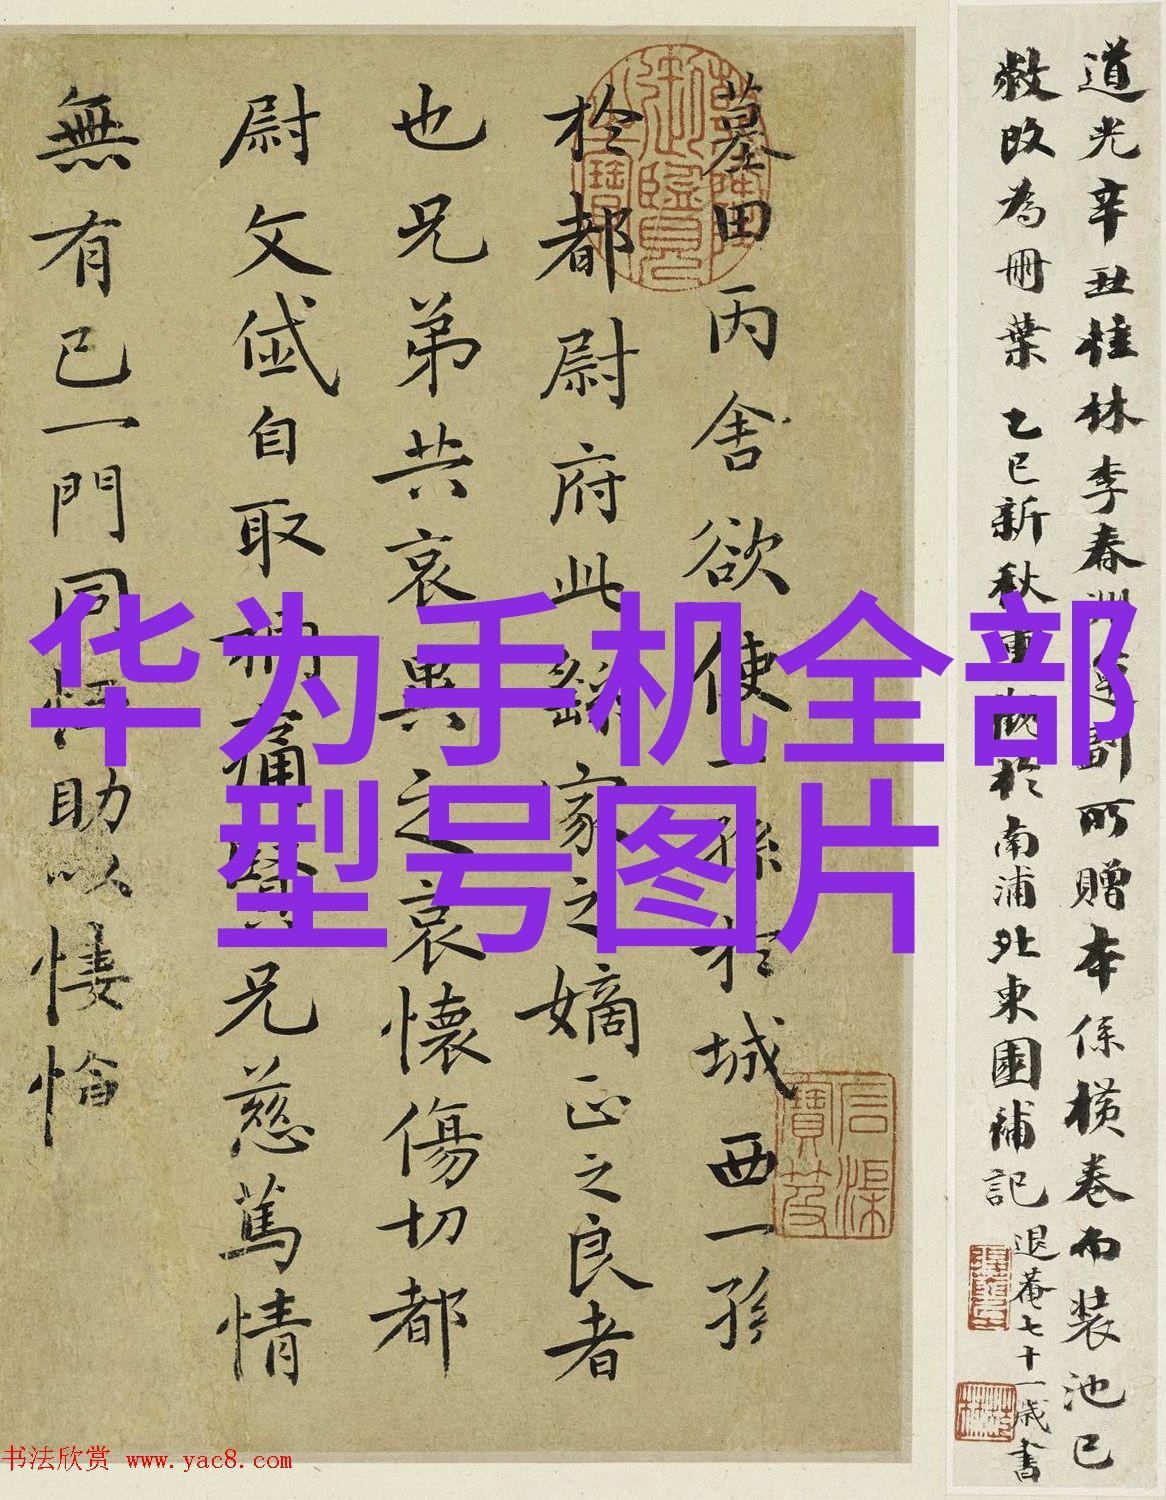 墓田丙舍欲使一孫於城西一孫
於都尉府此繇家之嫡正之良者
也兄弟共哀異之哀懷傷切都
尉文岱自取禍痛賢兄慈篤情
無有已一門同恤助以悽愴
道光辛丑桂林李春洲運副所贈本係橫卷而裝池已
敝改為冊葉 乙巳新秋重觀於南浦北東園補記
退菴七十一歲書
华为手机全部
型号图片
书法欣赏 www.yac8.com